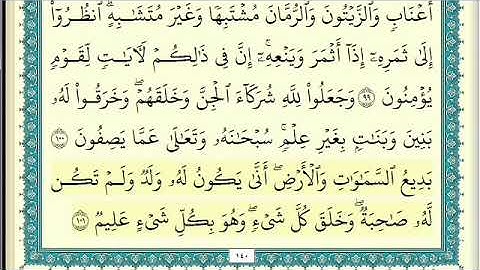 أَعْنَابٍ وَٱلزَّيْتُونَ وَٱلرُّمَّانَ مُشْتَبِهًا وَغَيْرَ مُتَشَٰبِهٍۗ ٱنظُرُوٓا۟
إِلَىٰ ثَمَرِهِۦٓ إِذَآ أَثْمَرَ وَيَنْعِهِۦٓۚ إِنَّ فِى ذَٰلِكُمْ لَءَايَٰتٍ لِّقَوْمٍ
يُؤْمِنُونَ ٩٩ وَجَعَلُوا۟ لِلَّهِ شُرَكَآءَ ٱلْجِنَّ وَخَلَقَهُمْۖ وَخَرَقُوا۟ لَهُۥ
بَنِينَ وَبَنَٰتٍۭ بِغَيْرِ عِلْمٍۚ سُبْحَٰنَهُۥ وَتَعَٰلَىٰ عَمَّا يَصِفُونَ ١٠٠
بَدِيعُ ٱلسَّمَٰوَٰتِ وَٱلْأَرْضِۖ أَنَّىٰ يَكُونُ لَهُۥ وَلَدٌ وَلَمْ تَكُن
لَّهُۥ صَٰحِبَةٌۖ وَخَلَقَ كُلَّ شَىْءٍۖ وَهُوَ بِكُلِّ شَىْءٍ عَلِيمٌ ١٠١
١٤٠